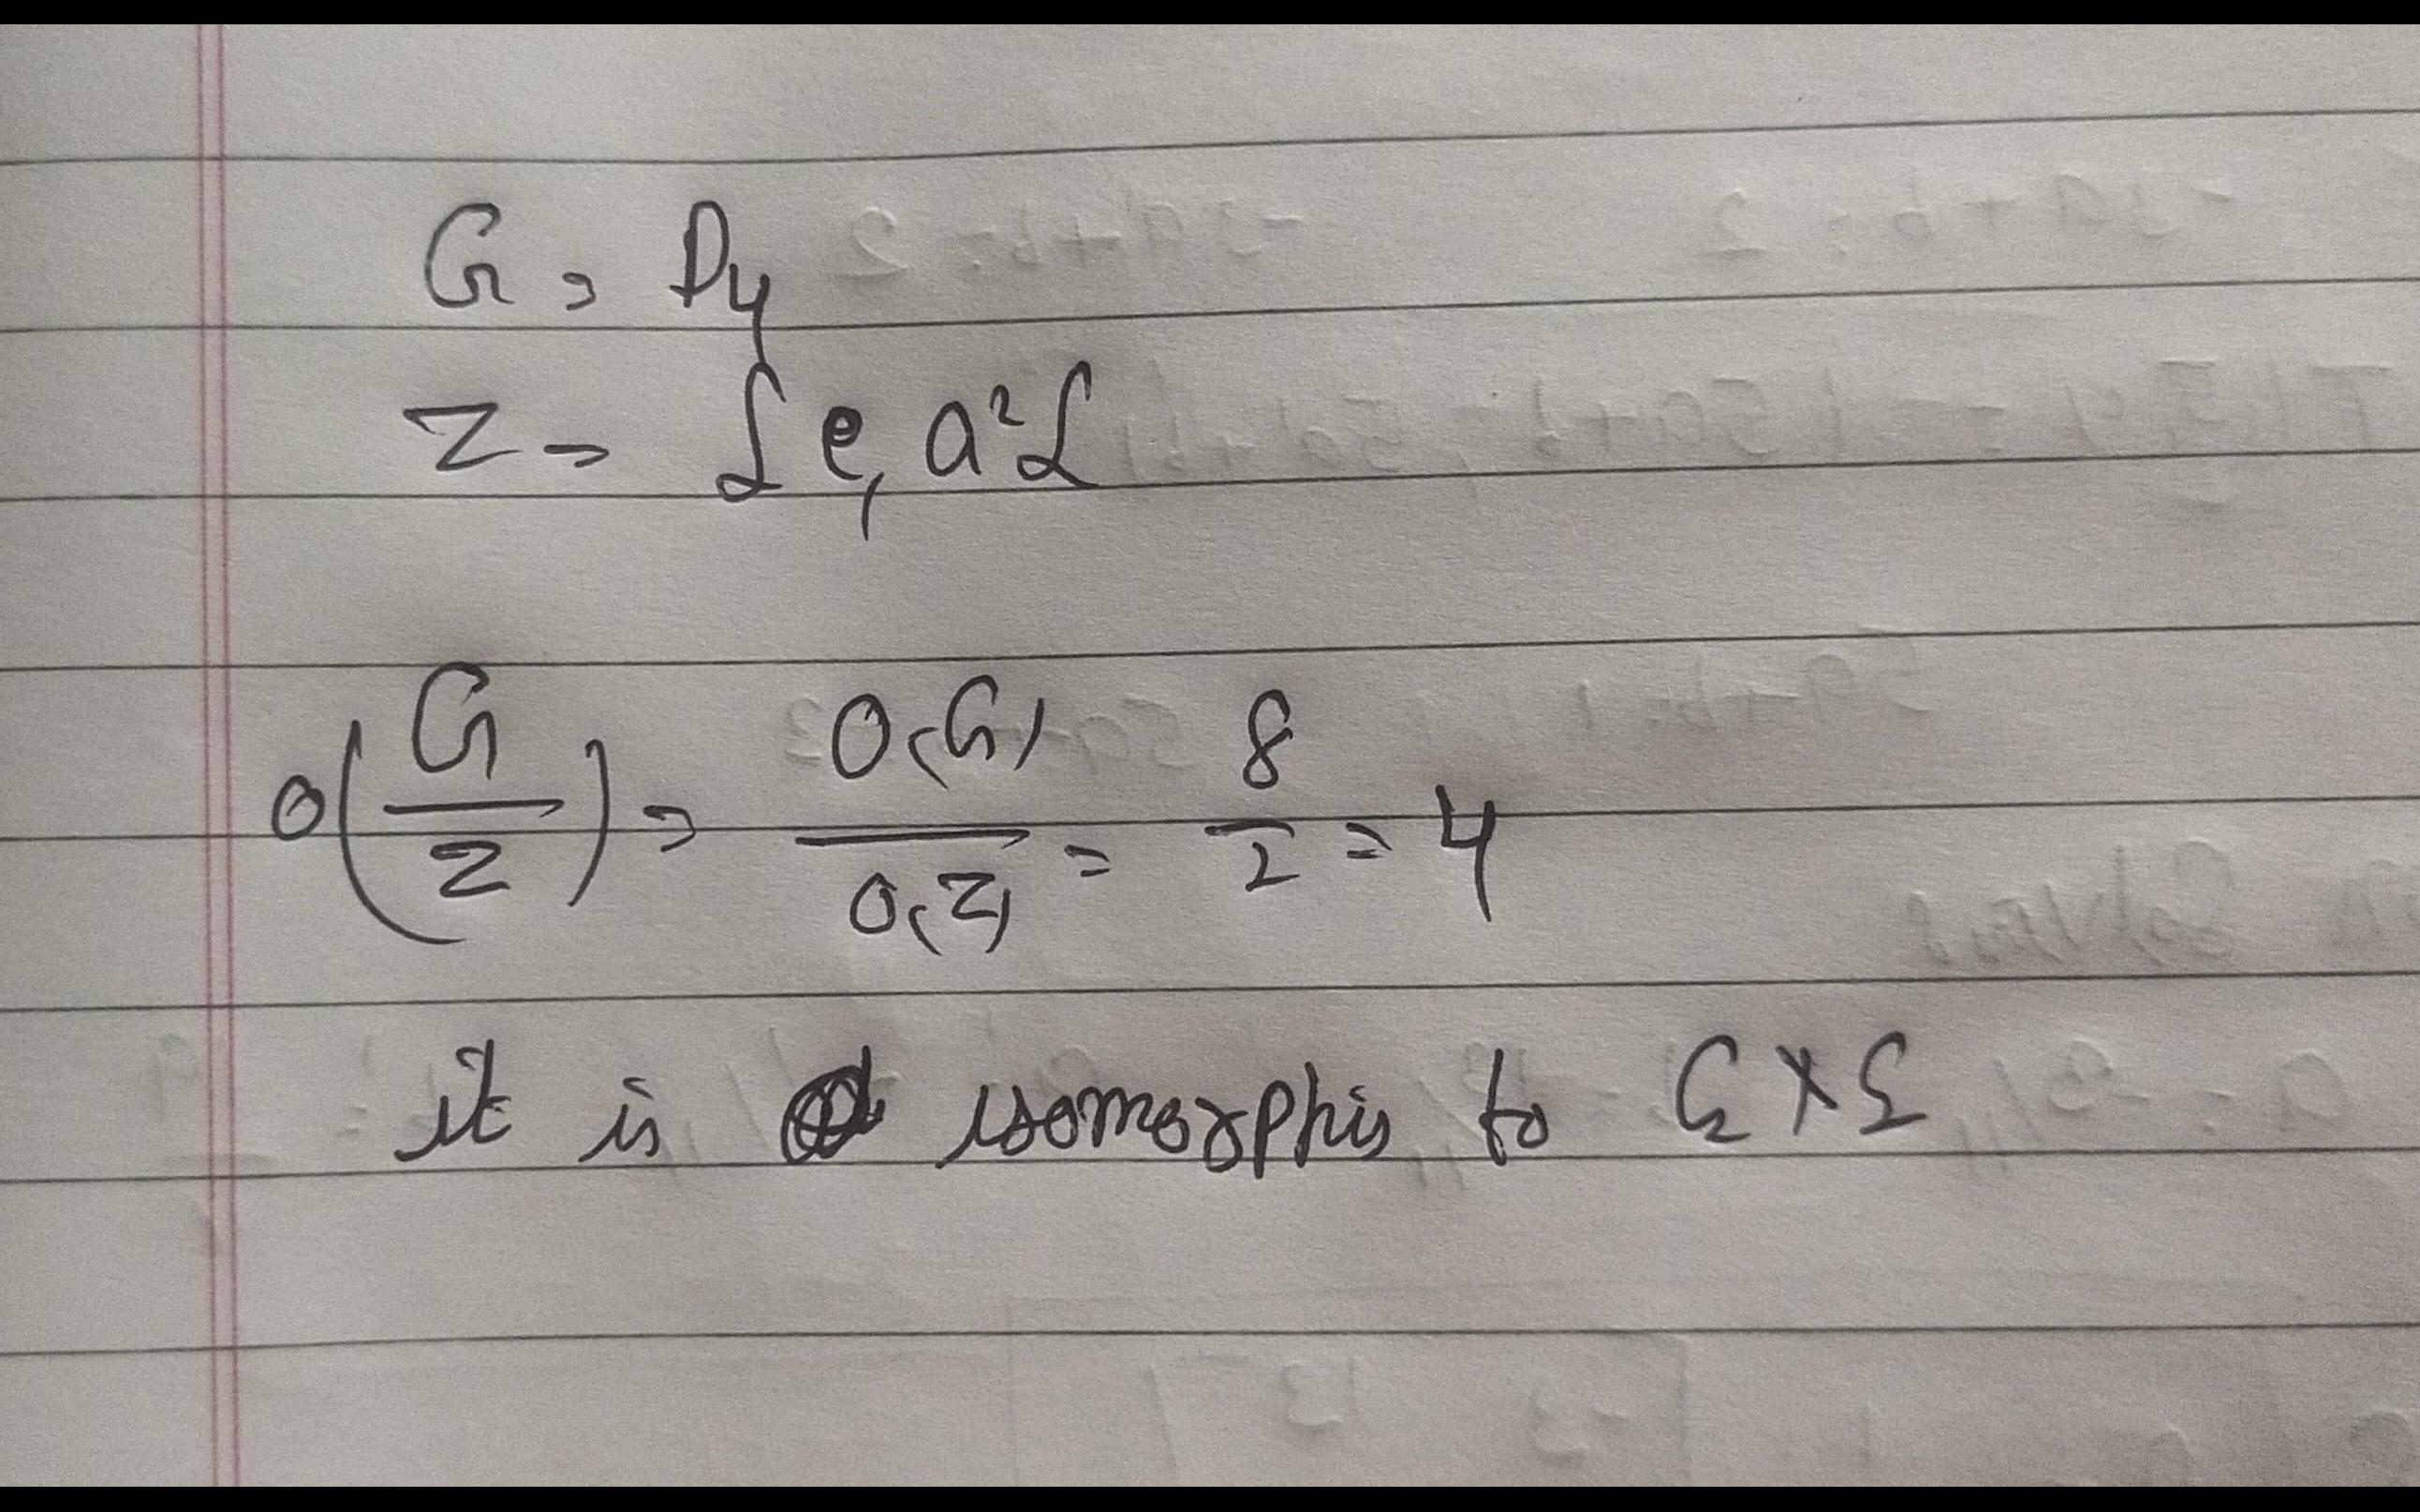 G = D4
Z = { e, a² }
O(G/Z) = O(G)/O(Z) = 8/2 = 4
it is isomorphis to